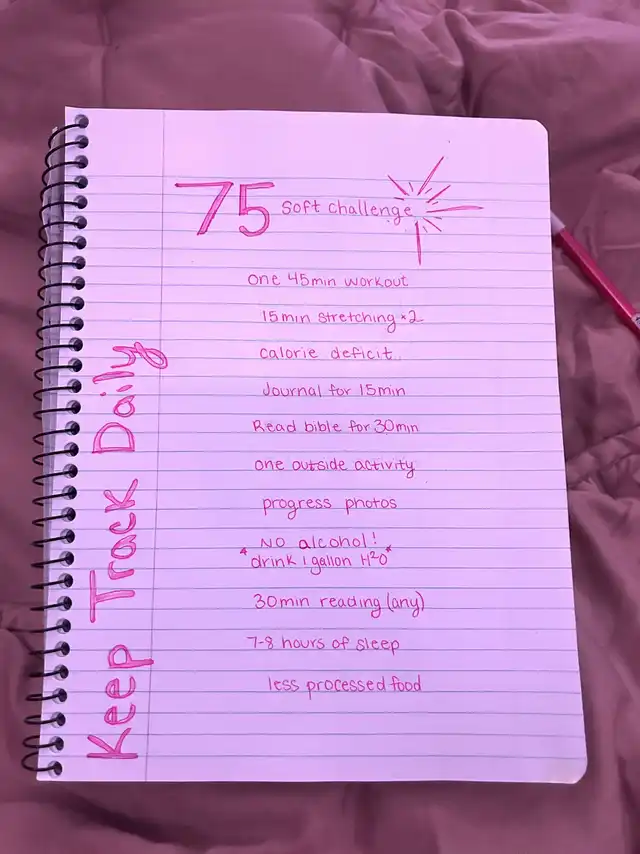 75 soft challenge
one 45min workout
15min stretching x2
calorie deficit
Journal for 15min
Read bible for 30min
one outside activity
progress photos
NO alcohol!
*drink 1 gallon H2O*
30min reading (any)
7-8 hours of sleep
less processed food
Keep Track Daily